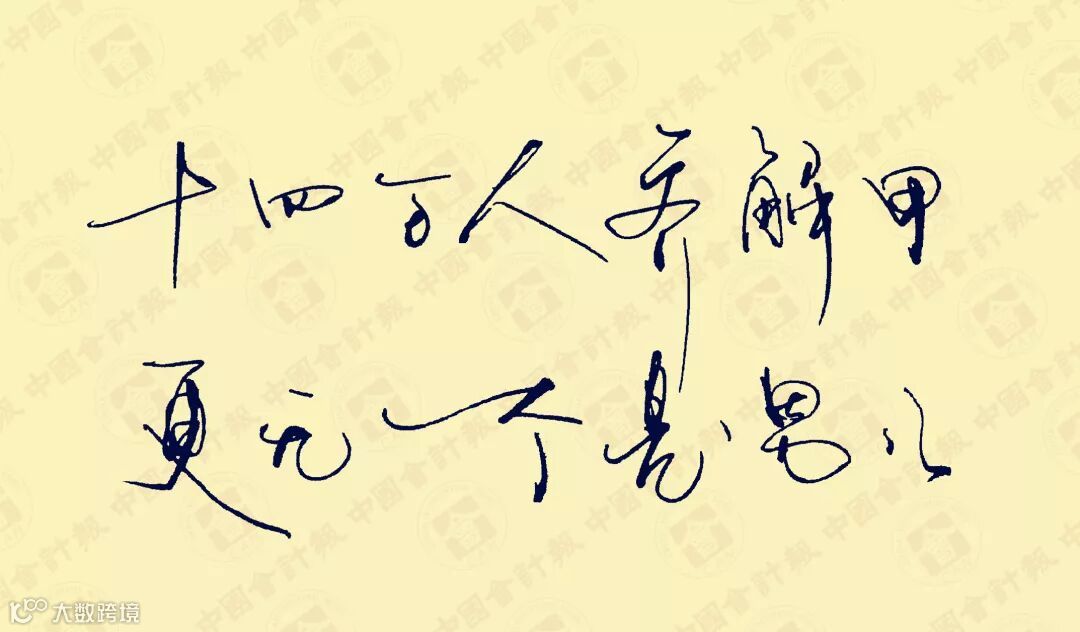 十四万人齐解甲
更无一个是男儿
中國會計報
大数跨境